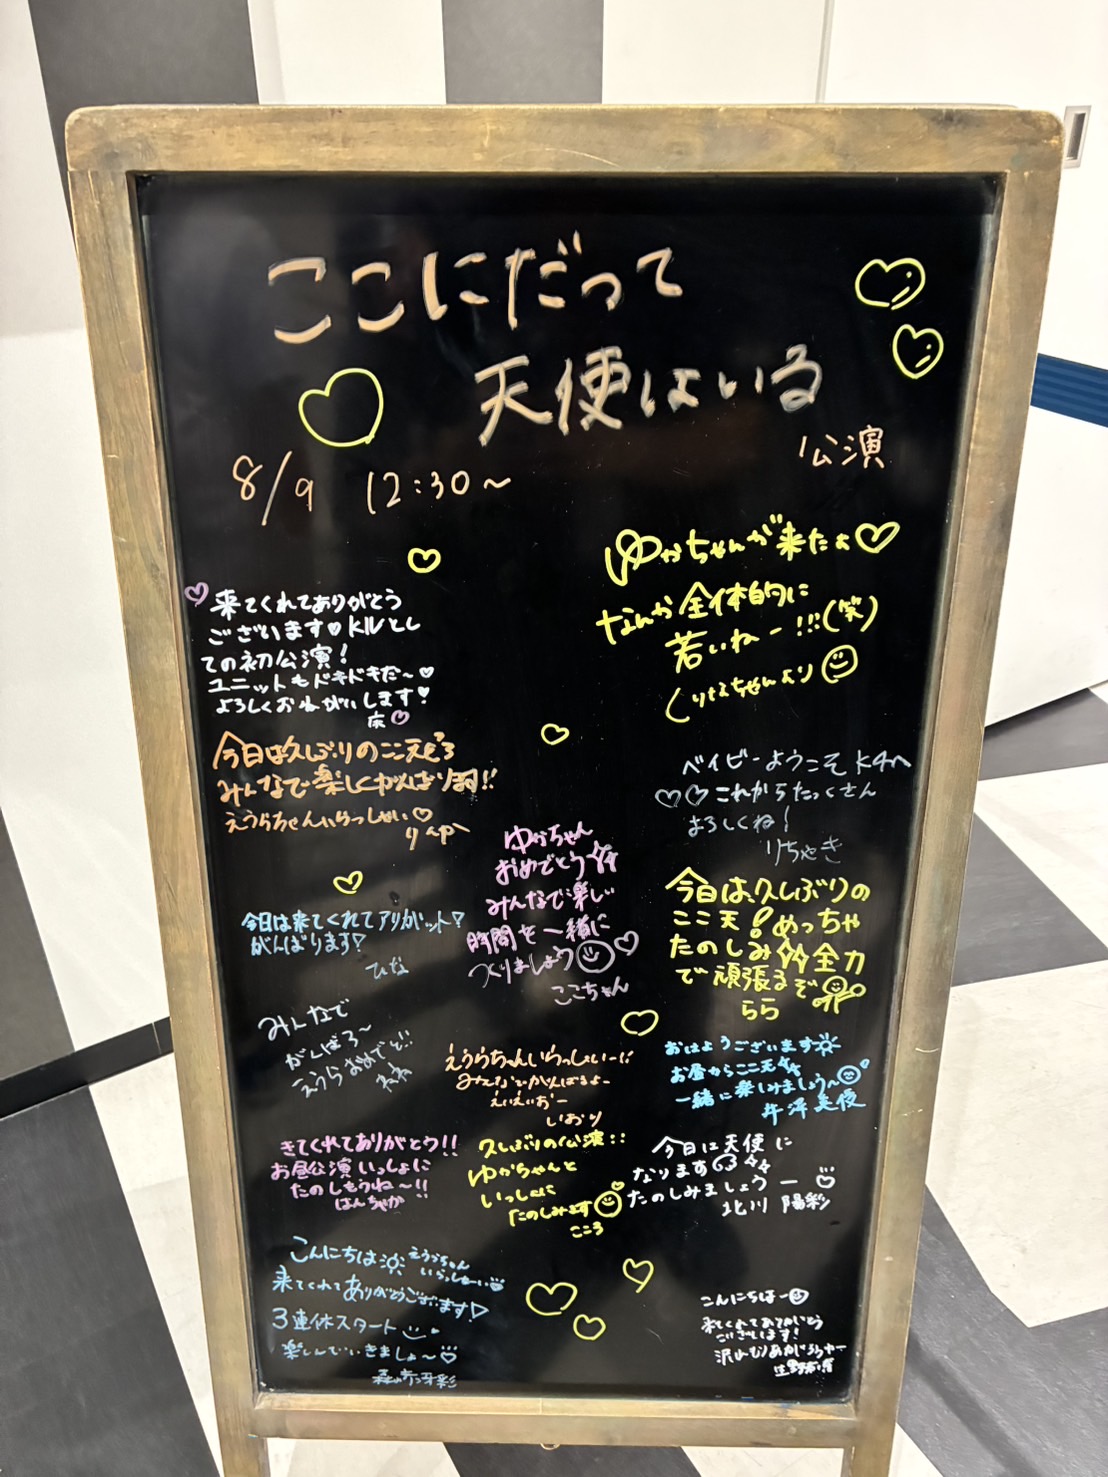 ここにだって
天使はいる
公演
8/9 12:30～
ゆかちゃんが来たよ♡
なんか全体的に
若いねー!!!(笑)
くりちゃんより
♡来てくれてありがとう
ございます♡KIVとし
ての初公演!
ユニットもドキドキだ～♡
よろしくおねがいします♡
今日は久しぶりのここ天どろ
みんなで楽しくがんばり
えうらちゃんいらっしゃい♡
りんか
ベイビーようこそK4へ
♡♡これからたっくさん
よろしくね!
りちゃき
ゆかちゃん
おめでとう
みんなで楽しい
時間を一緒に
つくりましょう♡
ここちゃん
今日は、久しぶりの
ここ天!めっちゃ
たのしみ全力
で頑張るぞ
らら
今日は来てくれてアリがット!
がんばります!
ひな
みんなで
がんばろ～
えうらおめでと!!
ねね
えうらちゃんいらっしゃいー!!
みんなでがんばるよー
えいえいおー
いおり
おはようございます☀
お昼からここ天
一緒に楽しみましょう～
井澤美優
きてくれてありがとう!!
お昼公演いっしょに
たのしもうね～!!
はんちゃか
久しぶりの公演!!
ゆかちゃんと
いっしょに
たのしみます
こころ
今日は天使に
なります
たのしみましょうー
北川 陽彩
こんにちは☀えうらちゃん
いらっしゃーい
来てくれてありがとうございます!
3連休スタート
楽しんでいきましょ～♡
こんにちはー
来てくれてありがとう
ございます!